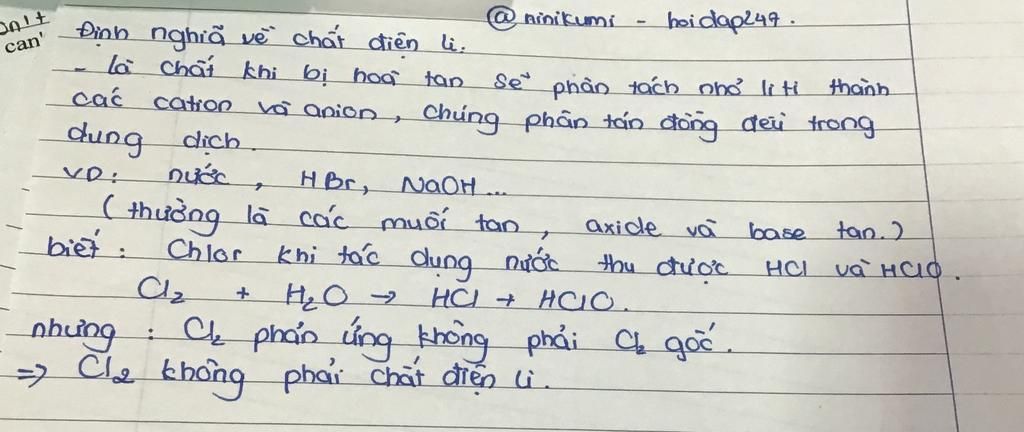 @ ninikumi - hoidap247.
can'
Định nghĩa về chất điện li.
- là chất khi bị hoà tan sẽ phân tách nhỏ li ti thành
các cation và anion, chúng phân tán đồng đều trong
dung dịch.
VD: nước, HBr, NaOH...
(thường là các muối tan, axide và base tan.)
biết: Chlor khi tác dụng nước thu được HCl và HClO.
Cl₂ + H₂O → HCl + HClO.
nhưng: Cl₂ phản ứng không phải Cl₂ gốc.
=> Cl₂ không phải chất điện li.